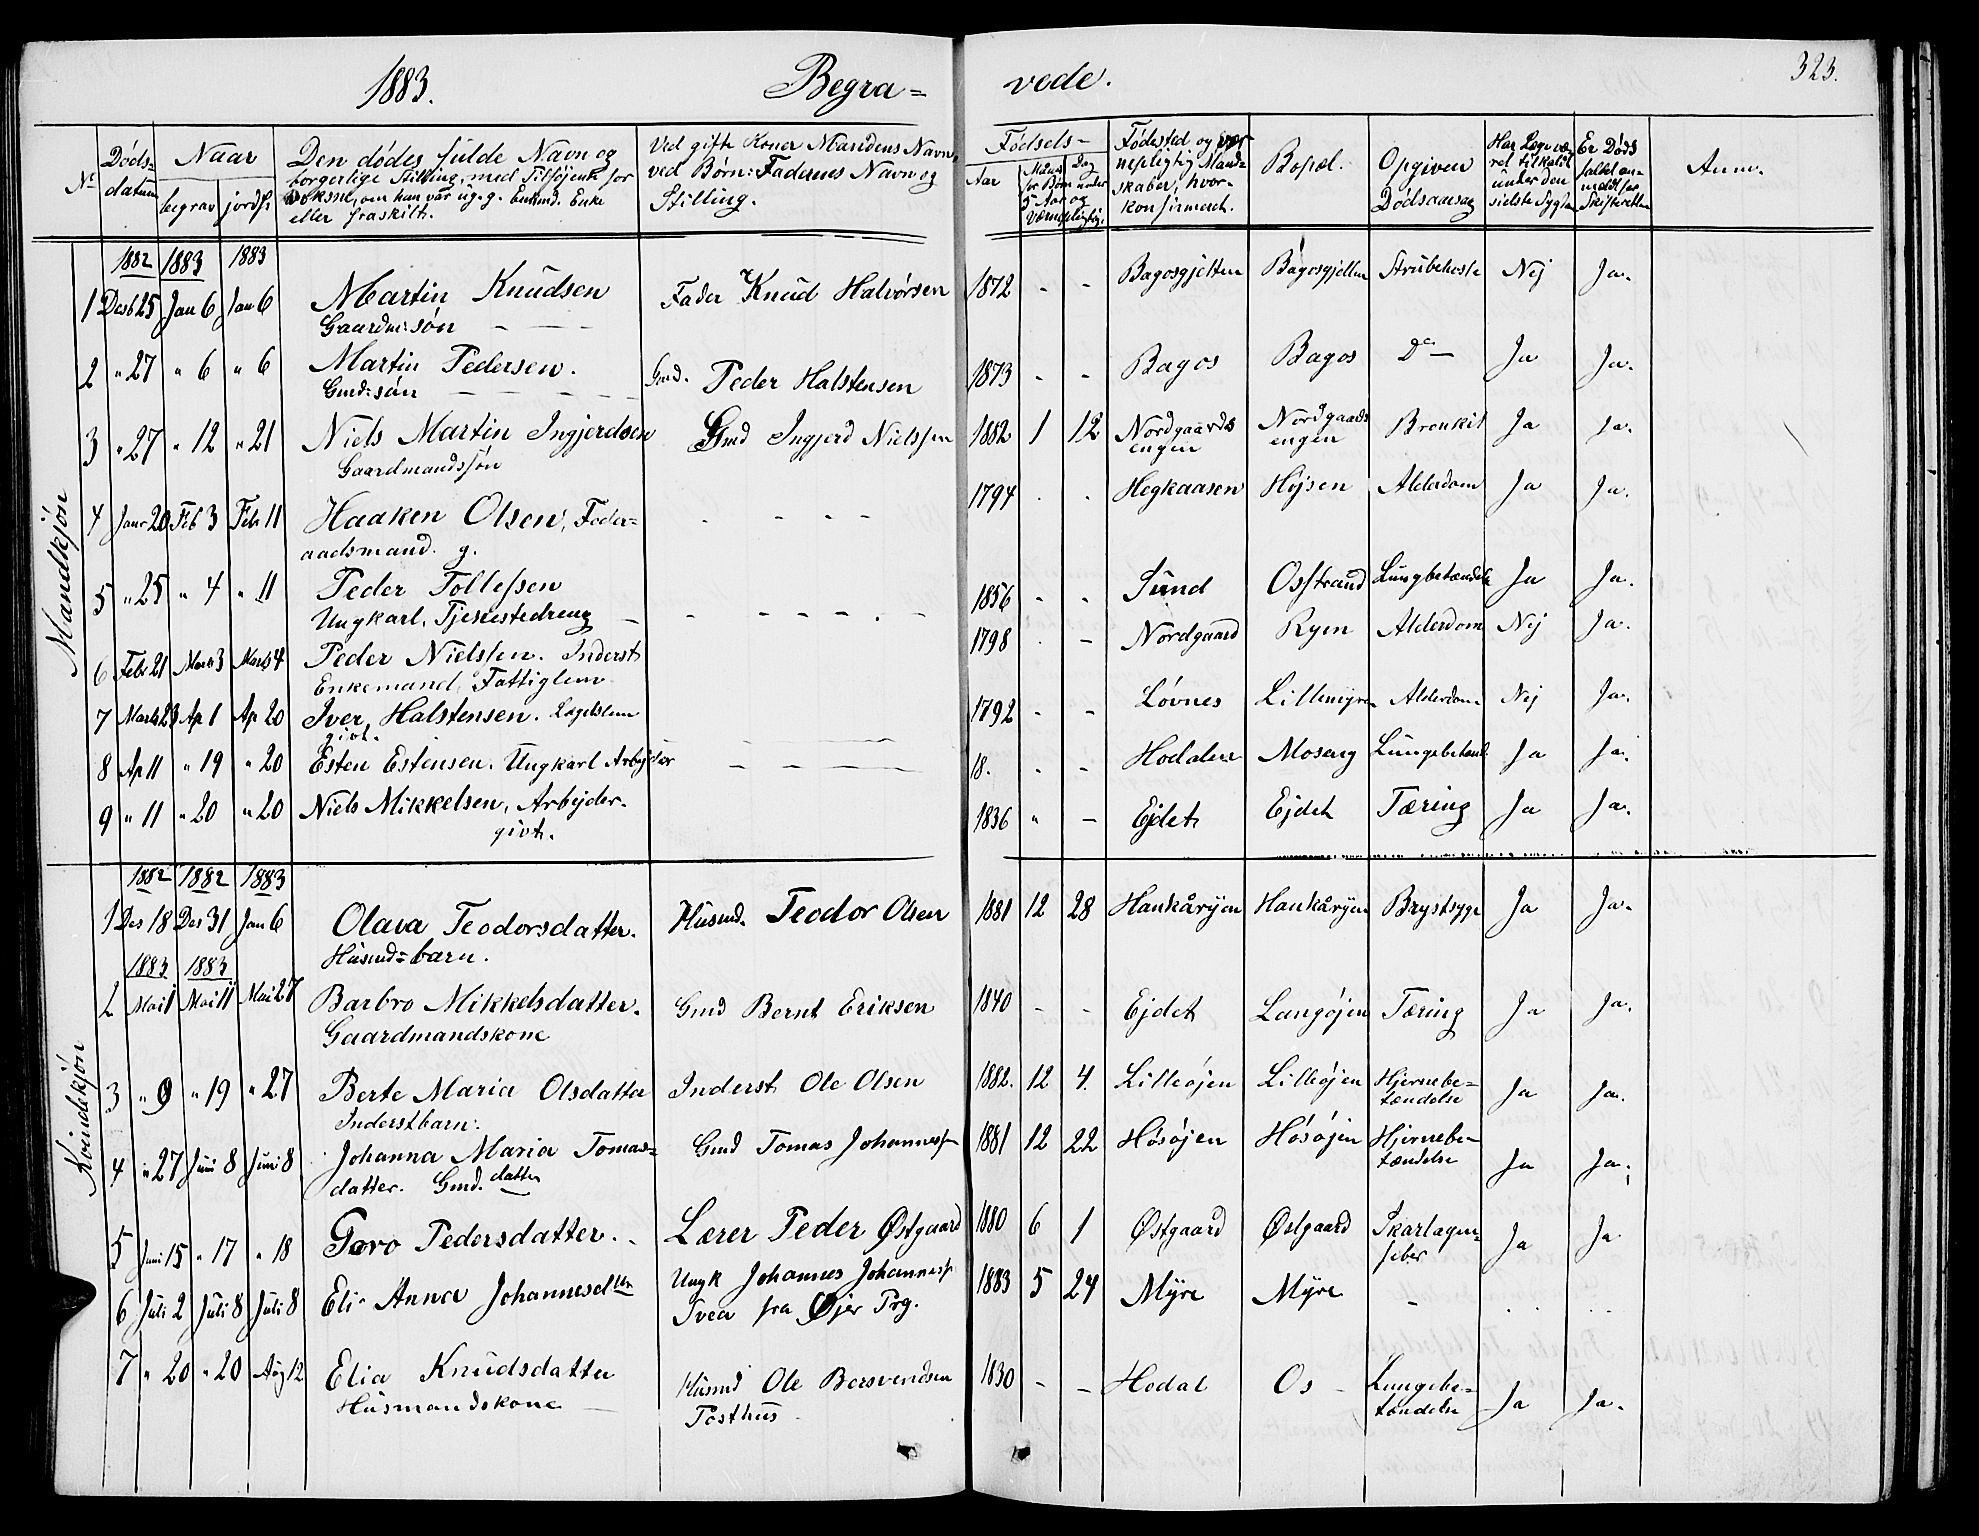 1883. Begra= vede. 323.
No Døds-datum Naar begrav jordf: Den dødes fulde Navn og borgerlige Stilling, med Tilføjende for Voksne, om han var ug. g. Enkmd. Enke eller fraskilt. Ved gifte Koner Mandens Navn, ved Børn: Faderens Navn og Stilling. Fødsels- Aar Maaned for Børn under 5 Aar og Dag Fødested og værnepligtig Mandskaber, hvor konfirmeret. Bopæl. Opgiven Dødsaarsag Har Læge været tilkaldt under den sidste Sygdom Er Dødsfaldet anmeldt for Skifteretten Anm.
Mandkjøn
1882 1883 1883
1 Desb 25 Jan 6 Jan 6 Martin Knudsen Fader Knud Halvorsen 1872 - - Bagosgjelten Bagosgjelten Strubehoste Nej Ja.
Gaardm: søn
2 " 27 " 6 " 6 Martin Pedersen. Gmd. Peder Halstensen 1873 - - Bagos Bagos Do — Ja Ja.
Gmd: søn
3 " 27 " 12 " 21 Niels Martin Ingjerdsen Gmd Ingjerd Nielssen 1882 1 12 Nordgaards Nordgaards Bronkit Ja Ja.
Gaardmandssøn engen engen
4 Janr 20 Feb 3 Feb 11 Haaken Olsen, Foder= - - - - 1794 . . Hegkaasen Højsen Alderdom Ja Ja.
aadsmand. g.
5 " 25 " 4 " 11 Peder Tollefsen 1856 - - Sund Osstrand Lungbetændels Ja Ja.
Ungkarl, Tjenestedreng
6 Febr 21 Marts 3 Marts 4 Peder Nielssen. Inderst 1798 . - Nordgaard Ryen Alderdom Nej Ja.
Enkemand, Fattiglem
7 Marts 23 Ap 1 Ap 20 Iver Halstensen. Lægdslem 1792 - - Løvnes Lillemyren Alderdom Nej Ja.
givt.
8 Ap 11 " 19 " 20 Esten Estensen. Ungkarl Arbejder 18. - - Hodalen Moseng Lungebetænd Ja Ja.
9 " 11 " 20 " 20 Niels Mikkelsen, Arbejder. 1836 " - Ejdet Ejdet Tæring Ja Ja.
givt.
Kvindekjøn
1882 1882 1883
1 Des 18 Des 31 Jan 6 Olava Teodorsdatter. Husmd. Teodor Olsen 1881 12 28 Hankårøjen Hankårøjen Brystsyge Ja Ja.
Husmd=barn.
1883 1883
2 Mai 1 Mai 11 Mai 27 Barbro Mikkelsdatter. Gmd Bernt Eriksen 1840 - - Ejdet Langøjen Tæring Ja Ja.
Gaardmandskone
3 " 9 " 19 " 27 Berte Maria Olsdatter Inderst Ole Olsen 1882. 12 4. Lilleøjen Lilleøjen Hjernebe= Ja Ja.
Inderstbarn. tændelse
4 " 27 Juni 8 Juni 8 Johanna Maria Tomas= Gmd Tomas Johannes 1881 12 22 Høsøjen Høsøjen Hjernebe= Ja Ja.
datter. Gmd. datter tændelse
5 Juni 15 " 17 " 18 Goro Pedersdatter. Lærer Peder Østgaard 1880 6 1 Østgaard Østgaard Skarlagens= Ja Ja
feber
6 Juli 2 Juli 8 Juli 8 Eli Anna Johannesdtr Ungk Johannes Johannes 1883 5 24 Myre Myre -
Tvea fra Øjer Prg.
7 " 20 " 20 Aug 12 Elia Knudsdatter Husmd Ole Bersvendsen 1830 - - Hodal Os - Lungebe= Ja Ja.
Husmandskone Posthus tændelse